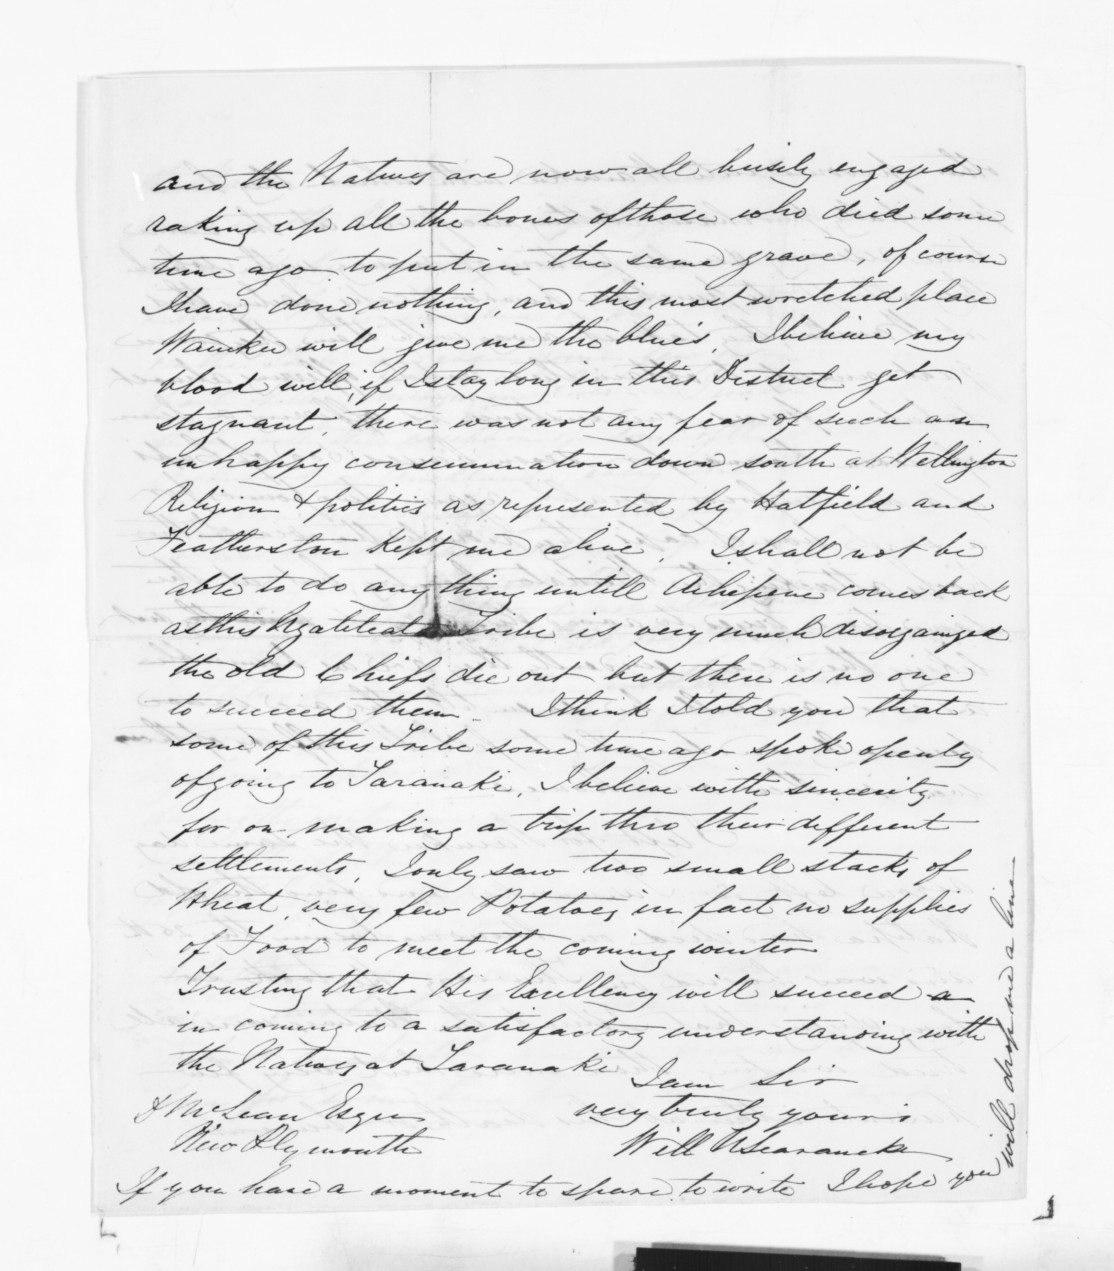 and the Natives are now all busily engaged
raking up all the bones of those who died some
time ago to put in the same grave, of course
I have done nothing, and this most wretched place
Waiuku will give me the blues, I believe my
blood will, if I stay long in this District get
stagnant, there was not any fear of such an
unhappy consummation down south at Wellington
Religion & politics as represented by Hatfield and
Featherston kept me alive. I shall not be
able to do any thing untill Aihepene comes back
as this Ngatiteata Tribe is very much disorganized
the old Chiefs die out but there is no one
to succeed them - I think I told you that
some of this Tribe some time ago spoke openly
of going to Taranaki, I believe with sincerity
for on making a trip thro their different
settlements, I only saw two small stacks of
Wheat, very few Potatoes, in fact no supplies
of Food to meet the coming winter
Trusting that His Excellency will succeed
in coming to a satisfactory understanding with
the Natives at Taranaki
I am Sir
very truly yours
Will N Searancke
McLean Esqre
New Plymouth
If you have a moment to spare to write I hope you
will drop me a line